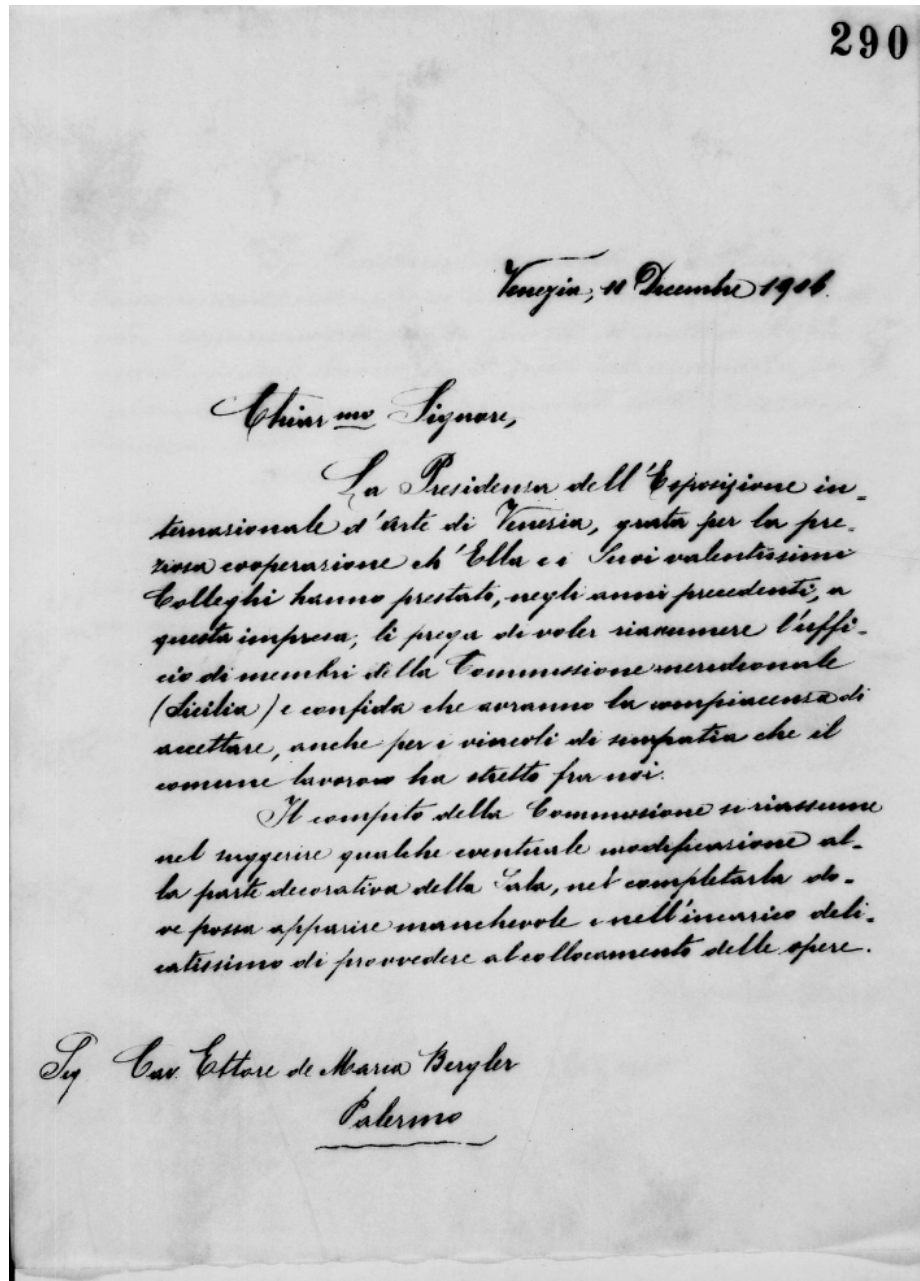 290
Venezia, 11 Dicembre 1906.
Chiar mo Signore,
La Presidenza dell'Esposizione in-
ternazionale d'Arte di Venezia, grata per la pre-
ziosa cooperazione ch'Ella e i Suoi valentissimi
Colleghi hanno prestato, negli anni precedenti, a
questa impresa, li prega di voler riassumere l'uffi-
cio di membri della Commissione meridionale
(Sicilia) e confida che avranno la compiacenza di
accettare, anche per i vincoli di simpatia che il
comune lavoro ha stretto fra noi.
Il compito della Commissione si riassume
nel suggerire qualche eventuale modificazione al-
la parte decorativa della Sala, nel completarla do-
ve possa apparire manchevole e nell'incarico deli-
catissimo di provvedere al collocamento delle opere.
Sig Cav. Ettore de Maria Bergler
Palermo